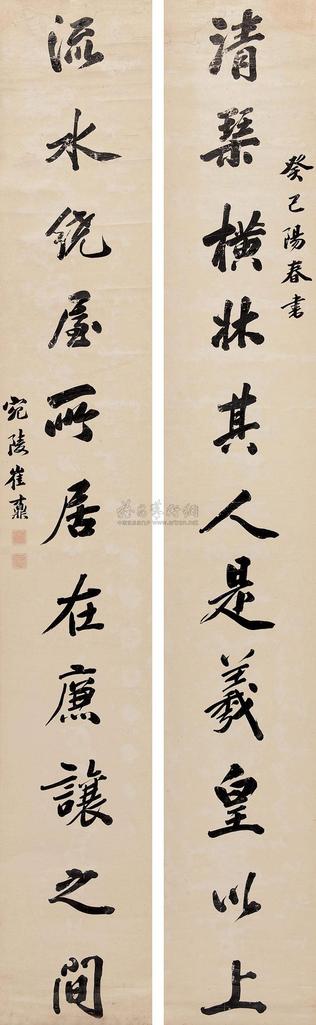 清琴橫牀其人是羲皇以上
癸巳陽春書
流水繞屋所居在廉讓之間
宛陵崔
雅昌藝術網